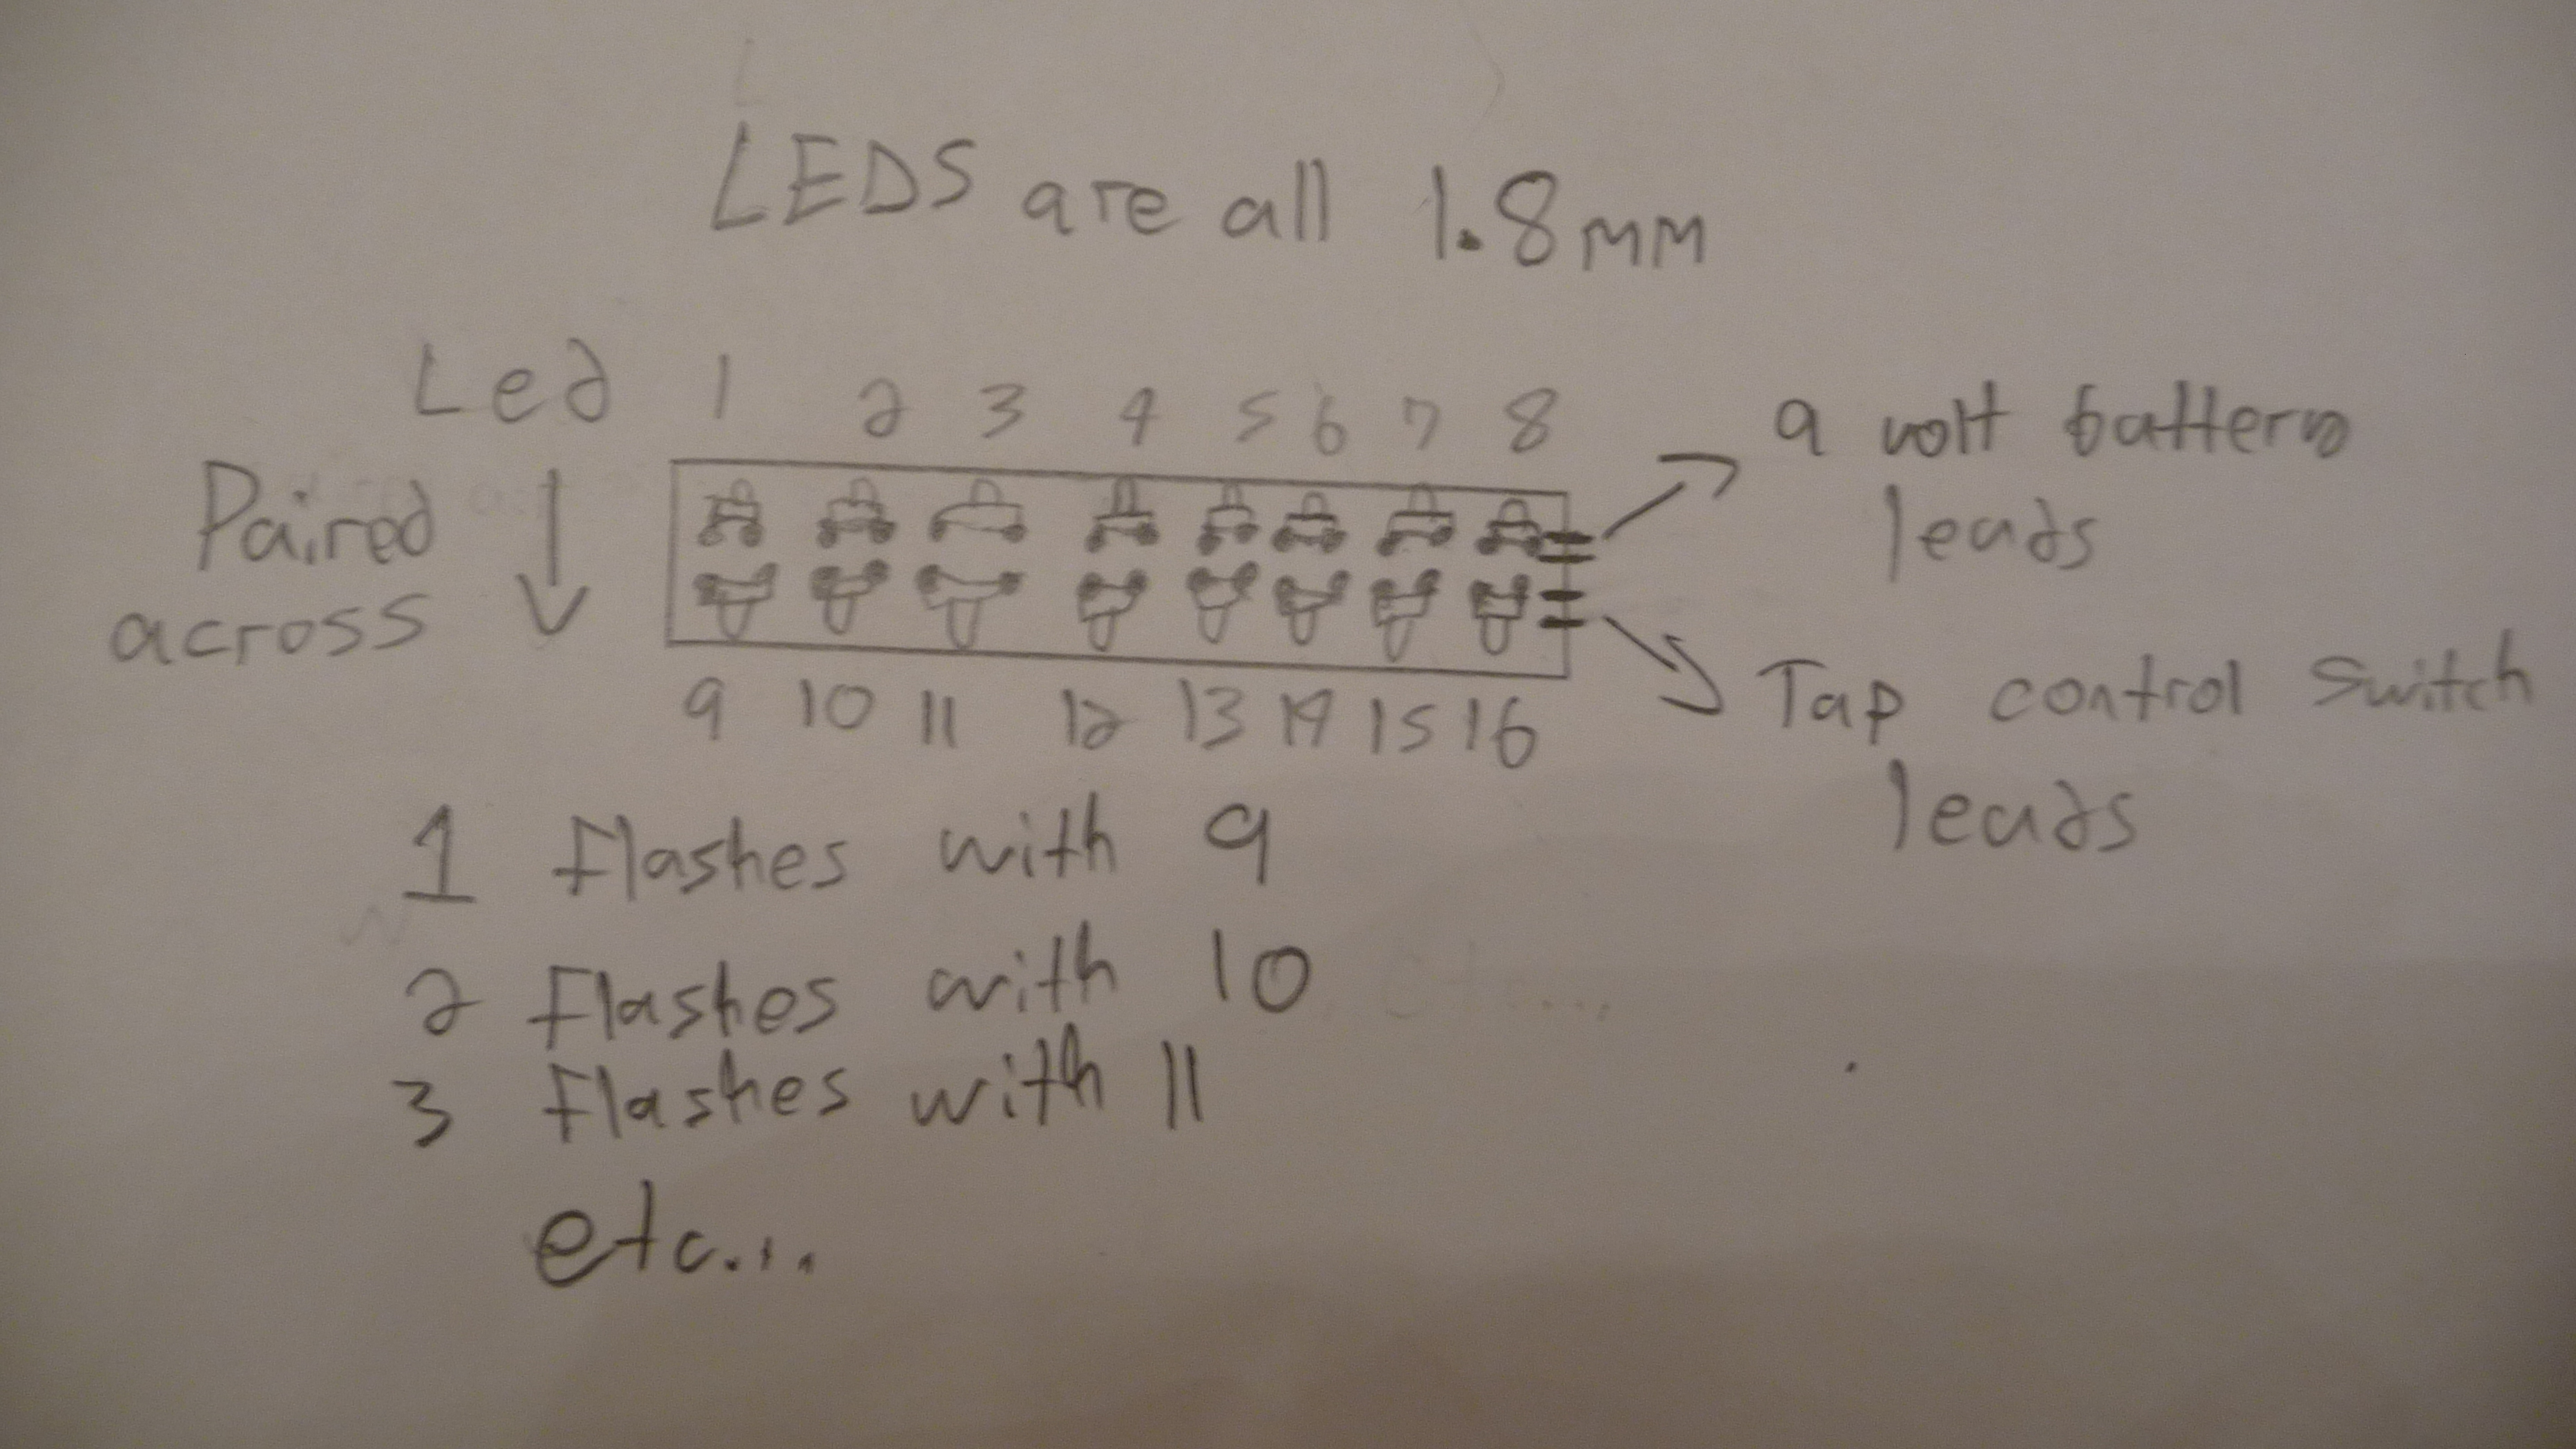 LEDS are all 1.8mm
Led 1 2 3 4 5 6 7 8
Paired
across
9 volt battery
leads
9 10 11 12 13 14 15 16
Tap control switch
leads
1 flashes with 9
2 flashes with 10
3 flashes with 11
etc...